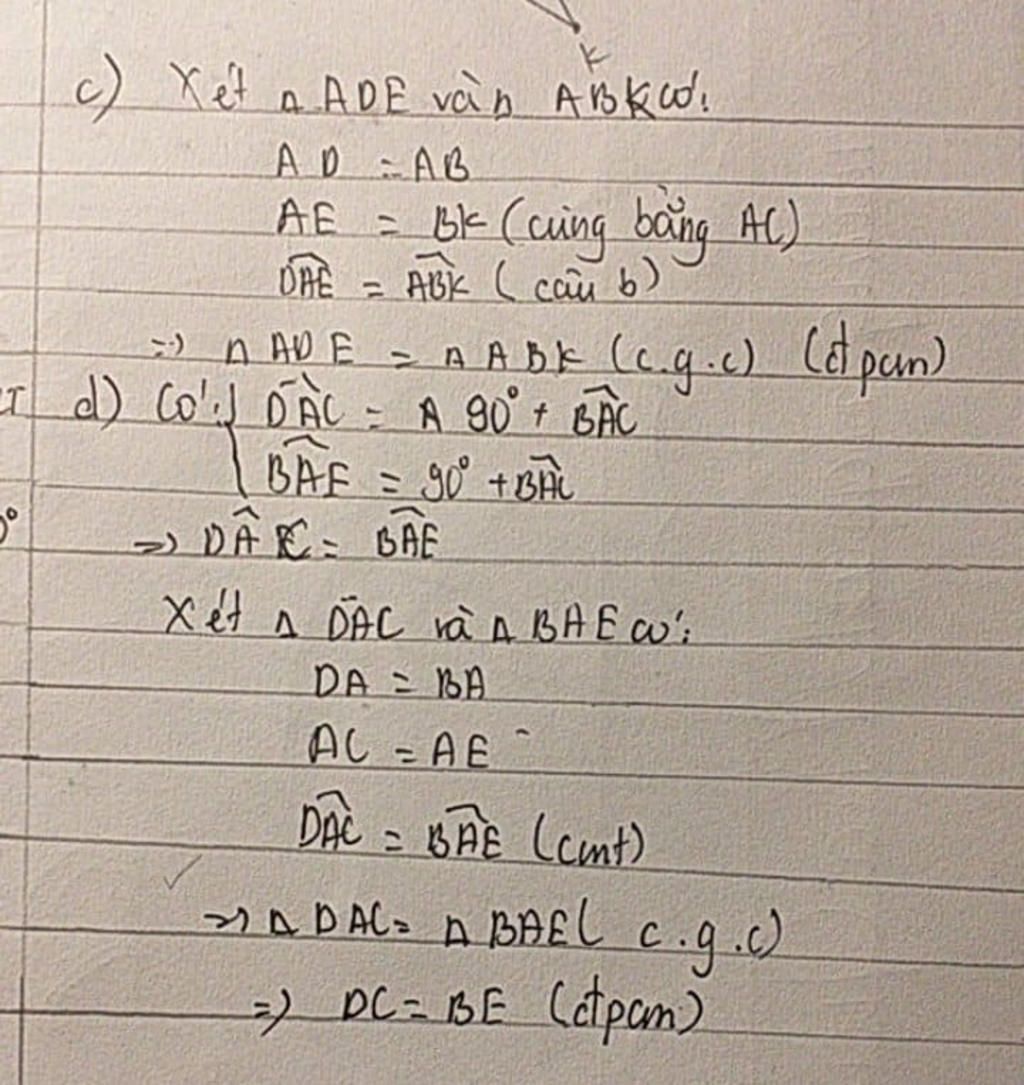 K
c) Xét Δ ADE và Δ ABK có:
AD = AB
AE = BK (cùng bằng AC)
DAE = ABK (câu b)
=> Δ ADE = Δ ABK (c.g.c) (đpcm)
d) Có: { DAC = A 90° + BAC
BAE = 90° + BAC
=> DAC = BAE
Xét Δ DAC và Δ BAE có:
DA = BA
AC = AE
DAC = BAE (cmt)
=> Δ DAC = Δ BAE ( c.g.c)
=> DC = BE (đpcm)